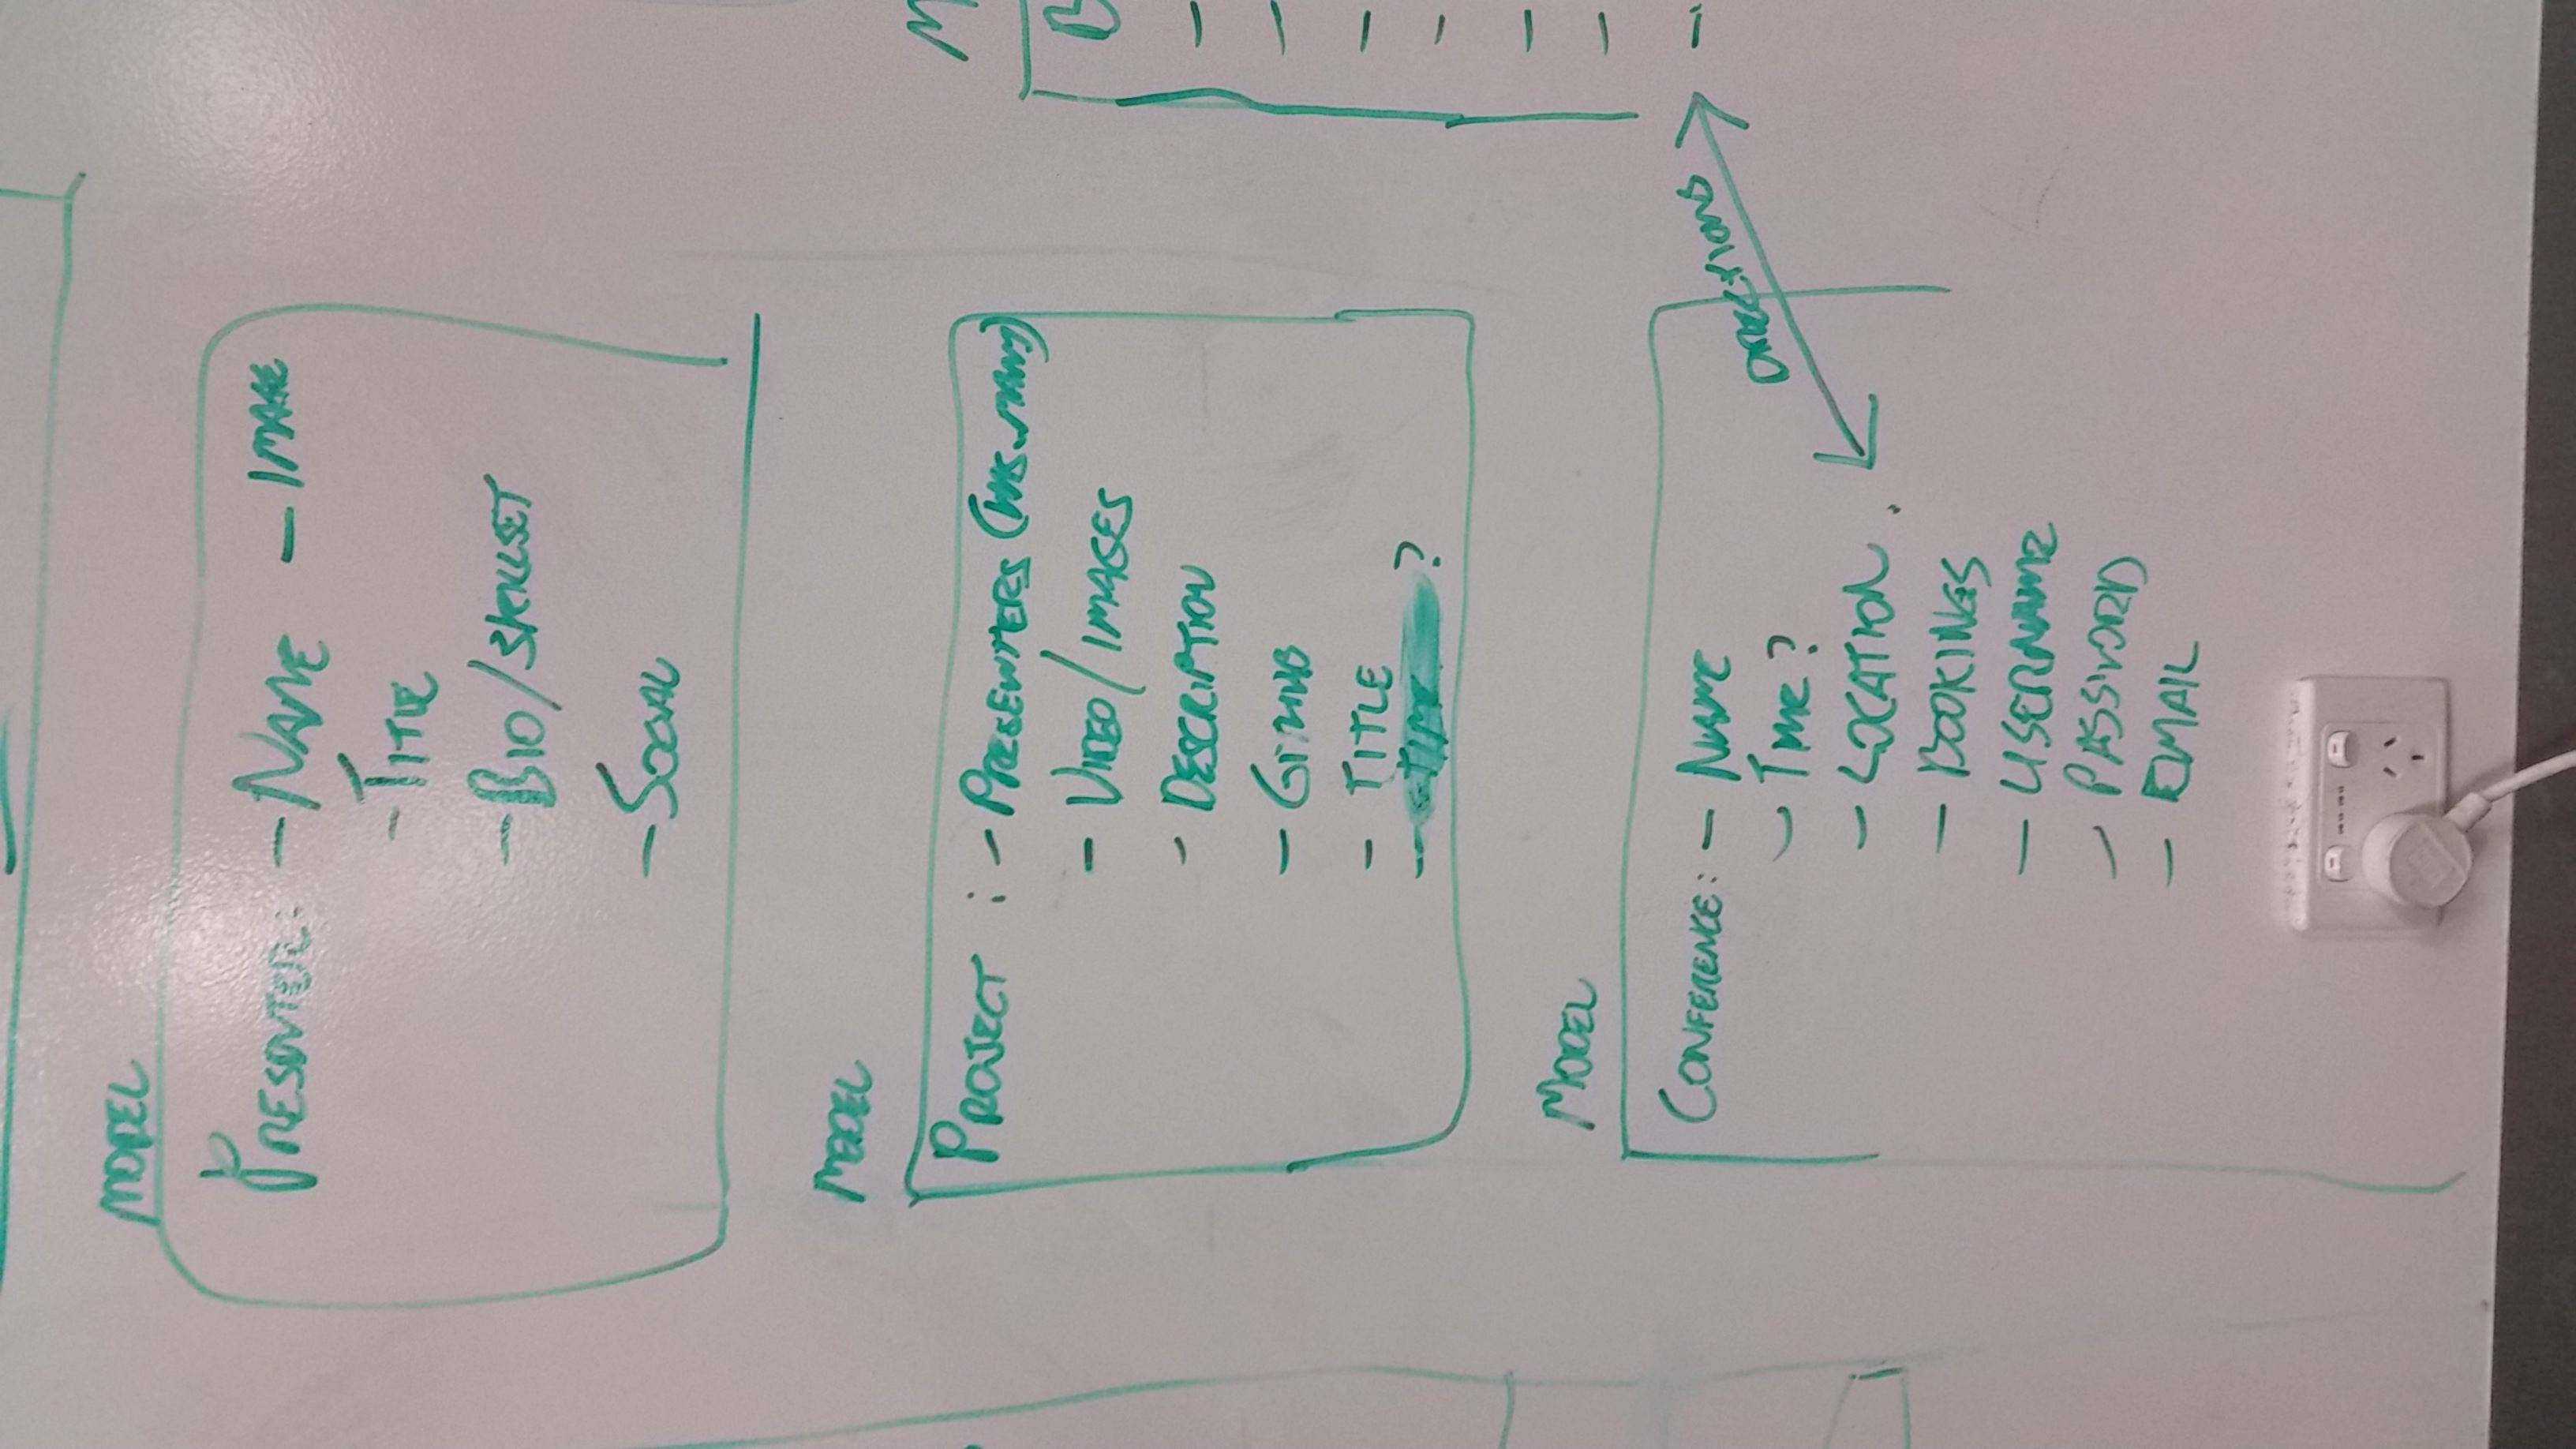 MODEL
PRESENTER: - NAME - IMAGE
- TITLE
- BIO/SKILLSET
- SOCIAL
MODEL
PROJECT : - PRESENTERS (HAS_MANY)
- VIDEO/IMAGES
- DESCRIPTION
- GITHUB
- TITLE
- TIME ?
MODEL
CONFERENCE: - NAME
- TIME?
- LOCATION
DIRECTIONS
- BOOKINGS
- USERNAME
- PASSWORD
- EMAIL
M
B